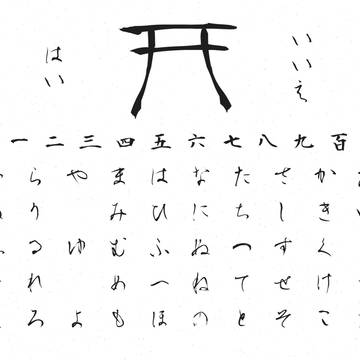 いいえ
はい
一二三四五六七八九百
かきくけこ
さしすせそ
たちつてと
なにぬねの
はひふへほ
まみむめも
やゆよ
らりるれろ